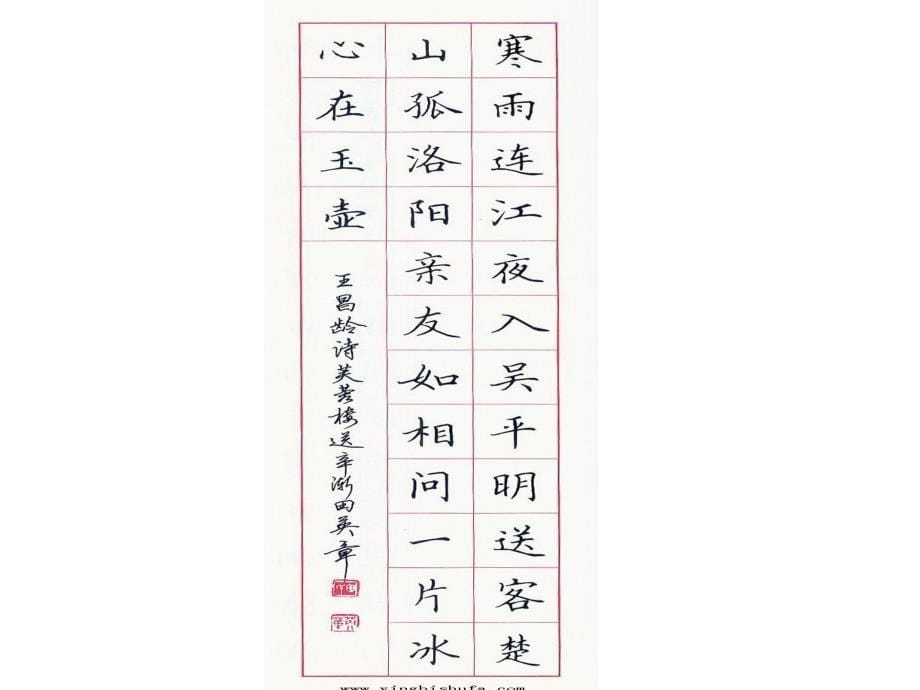 寒雨连江夜入吴平明送客楚
山孤洛阳亲友如相问一片冰
心在玉壶
王昌龄诗芙蓉楼送辛渐田英章